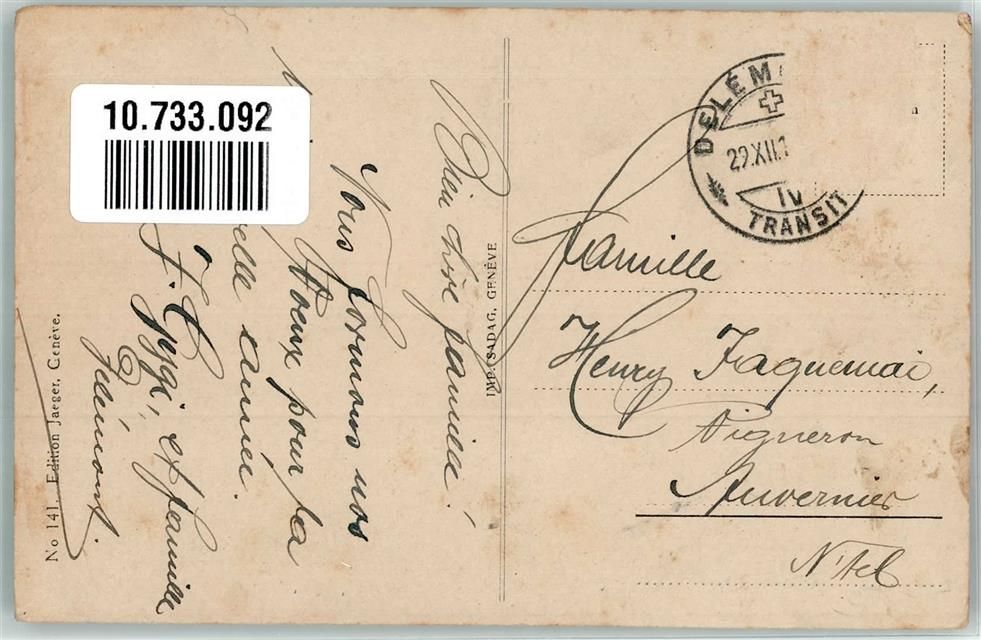 10.733.092
Bien chère famille!
Nous formons nos
Voeux pour la
elle année.
F. Gygi, et famille
Delémont.
No 141. Edition Jaeger, Genève.
IMP. SADAG, GENÈVE
DELÉM
29.XII.1
IV
TRANSIT
Famille
Henry Jaquemai,
Vigneron
Auvernier
N'tel